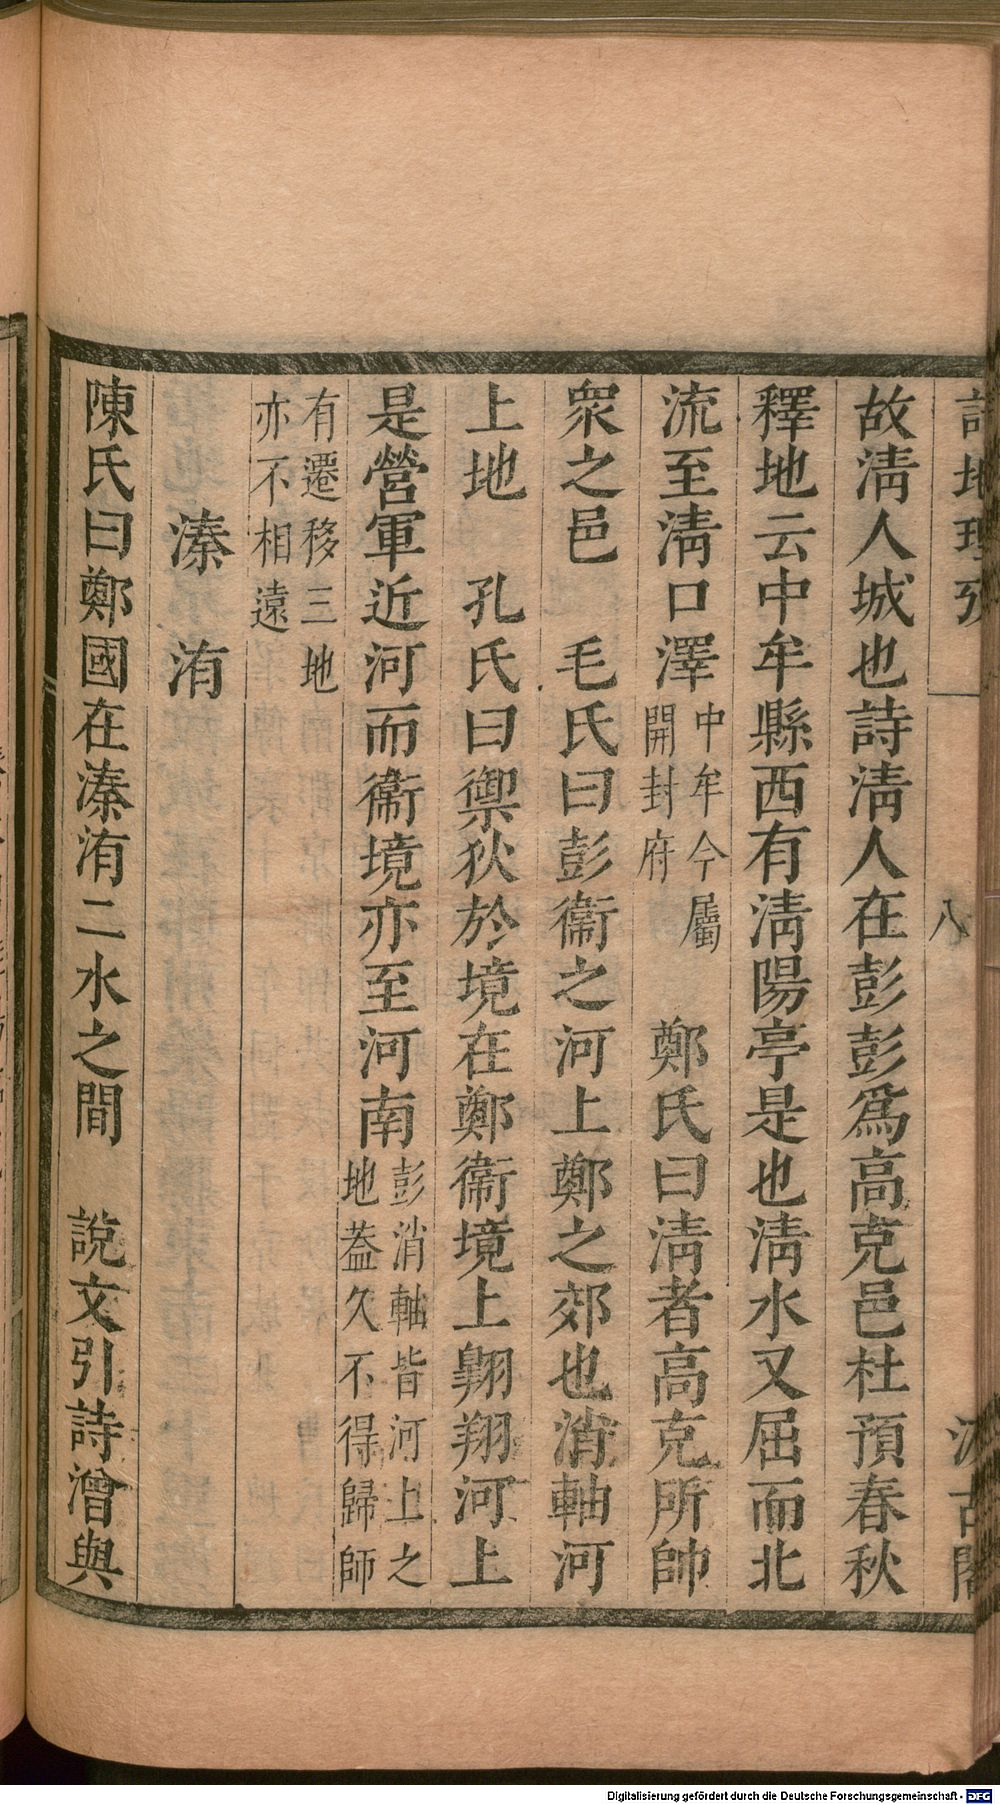 詩地理攷 八 汲古閣
故淸人城也詩淸人在彭彭爲高克邑杜預春秋
釋地云中牟縣西有淸陽亭是也淸水又屈而北
流至淸口澤中牟今屬開封府 鄭氏曰淸者高克所帥
衆之邑 毛氏曰彭衞之河上鄭之郊也消軸河
上地 孔氏曰禦狄於境在鄭衞境上翺翔河上
是營軍近河而衞境亦至河南彭消軸皆河上之地葢久不得歸師
有遷移三地亦不相遠
溱 洧
陳氏曰鄭國在溱洧二水之間 說文引詩潧與
Digitalisierung gefördert durch die Deutsche Forschungsgemeinschaft - DFG